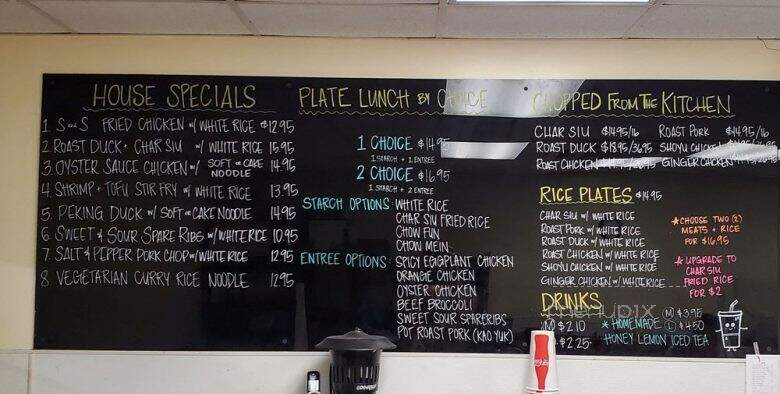 HOUSE SPECIALS
1. S and S FRIED CHICKEN w/ WHITE RICE $12.95
2. ROAST DUCK + CHAR SIU w/ WHITE RICE 15.95
3. OYSTER SAUCE CHICKEN w/ SOFT or CAKE NOODLE 14.95
4. SHRIMP + TOFU STIR FRY w/ WHITE RICE 13.95
5. PEKING DUCK w/ SOFT or CAKE NOODLE 14.95
6. SWEET & SOUR SPARE RIBS w/ WHITE RICE 10.95
7. SALT & PEPPER PORK CHOP w/ WHITE RICE 12.95
8. VEGETARIAN CURRY RICE NOODLE 12.95
PLATE LUNCH BY CHOICE
1 CHOICE $14.95
1 STARCH + 1 ENTREE
2 CHOICE $16.95
1 STARCH + 2 ENTREE
STARCH OPTIONS: WHITE RICE
CHAR SIU FRIED RICE
CHOW FUN
CHOW MEIN
ENTREE OPTIONS: SPICY EGGPLANT CHICKEN
ORANGE CHICKEN
OYSTER CHICKEN
BEEF BROCCOLI
SWEET SOUR SPARERIBS
POT ROAST PORK (KAO YUK)
CHOPPED FROM THE KITCHEN
CHAR SIU $14.95/lb ROAST PORK $14.95/lb
ROAST DUCK $18.95/36.95 SHOYU CHICKEN
ROAST CHICKEN GINGER CHICKEN
RICE PLATES $14.95
CHAR SIU w/ WHITE RICE
ROAST PORK w/ WHITE RICE
ROAST DUCK w/ WHITE RICE
ROAST CHICKEN w/ WHITE RICE
SHOYU CHICKEN w/ WHITE RICE
GINGER CHICKEN w/ WHITE RICE
* CHOOSE TWO (2)
MEATS + RICE
FOR $16.95
* UPGRADE TO
CHAR SIU
FRIED RICE
FOR $2
DRINKS
M $2.10
$2.25
* HOMEMADE
HONEY LEMON ICED TEA
M $3.95
L $4.50
menupix
Coca-Cola